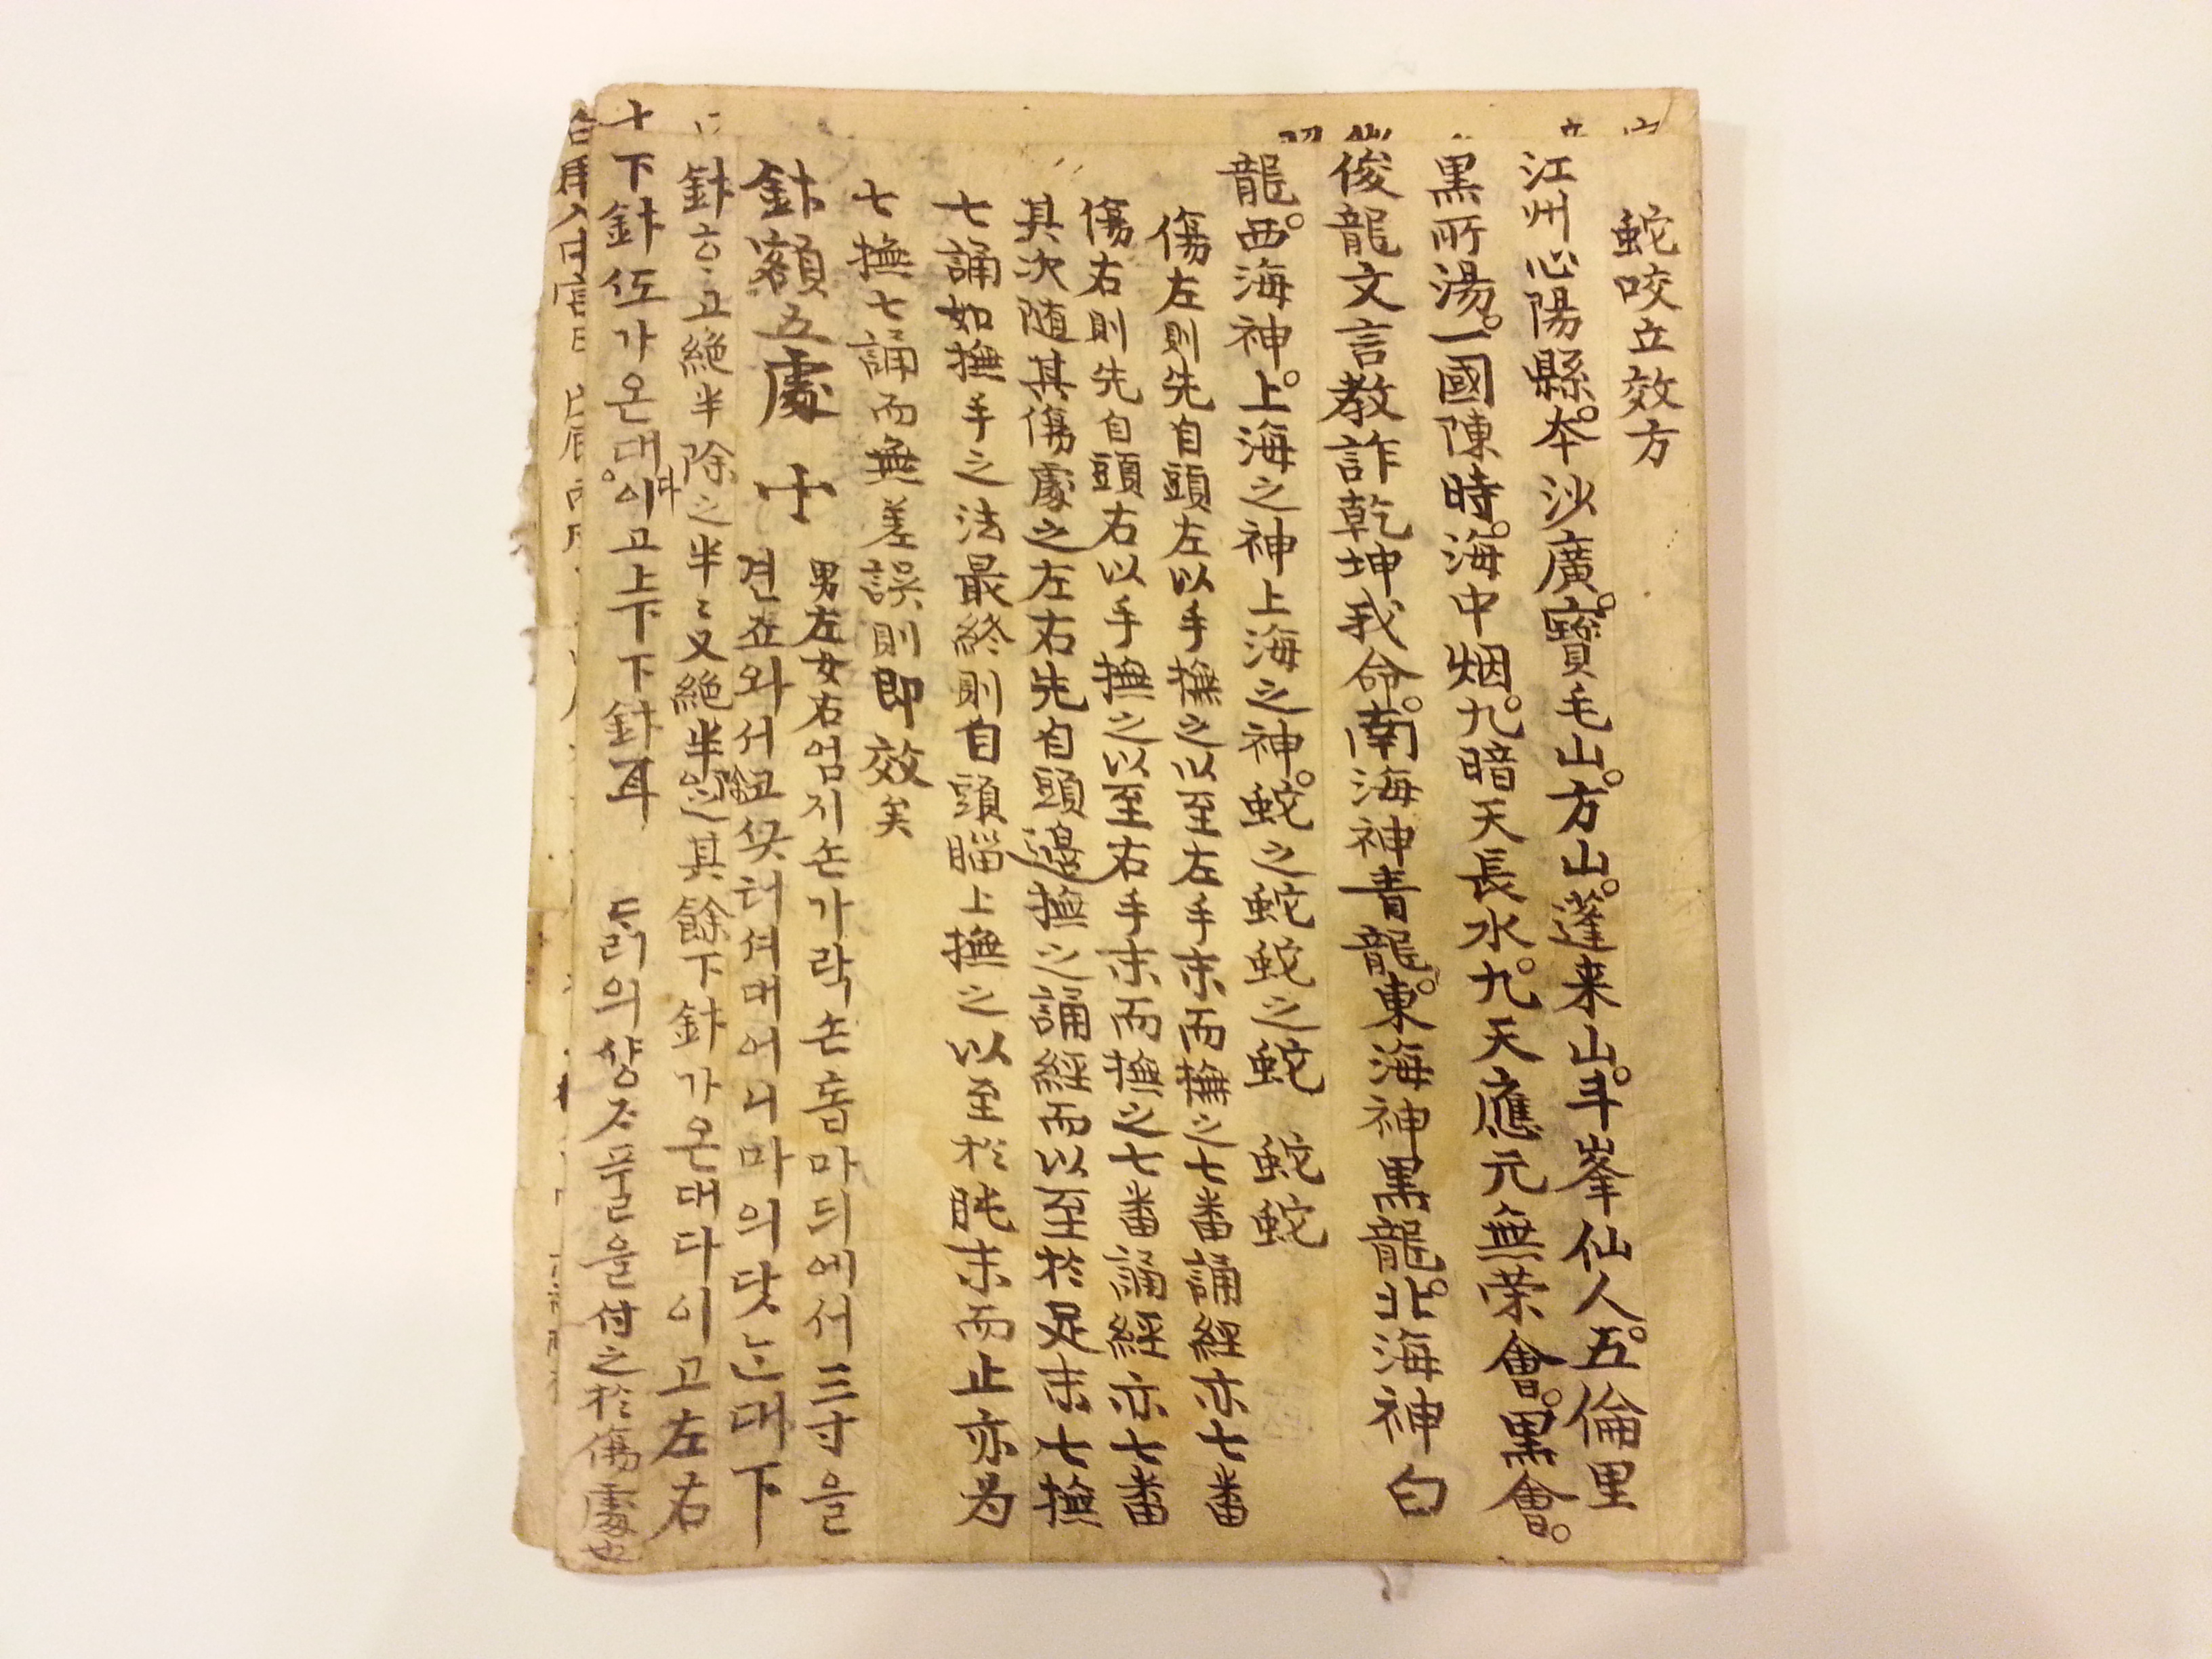 蛇咬立效方
江州心陽縣。本沙廣。寶毛山。方山。蓬来山。斗峯仙人。五倫里
黒所湯。一國陳時。海中烟。九暗天長水。九天應元無荣會。黒會。
俊龍文言教詐乾坤我命。南海神青龍。東海神黒龍。北海神白
龍。西海神。上海之神上海之神。蛇之蛇蛇之蛇 蛇蛇
傷左則先自頭左以手撫之以至左手末而撫之七番誦經亦七番
傷右則先自頭右以手撫之以至右手末而撫之七番誦經亦七番
其次随其傷處之左右先自頭邊撫之誦經而以至於足末七撫
七誦如撫手之法最終則自頭腦上撫之以至於眺末而止亦為
七撫七誦而無差誤則即效矣
針額五處 十 男左女右엄지손가락손톱마듸에서三寸을
견죠와서고 터셔대어니마의닷는대下
針고絕半除之半〻又絕半除之其餘下針가온대다이고左右
十下針伍가온대다이고上下下針耳 드리의샹 풀을付之於傷處也